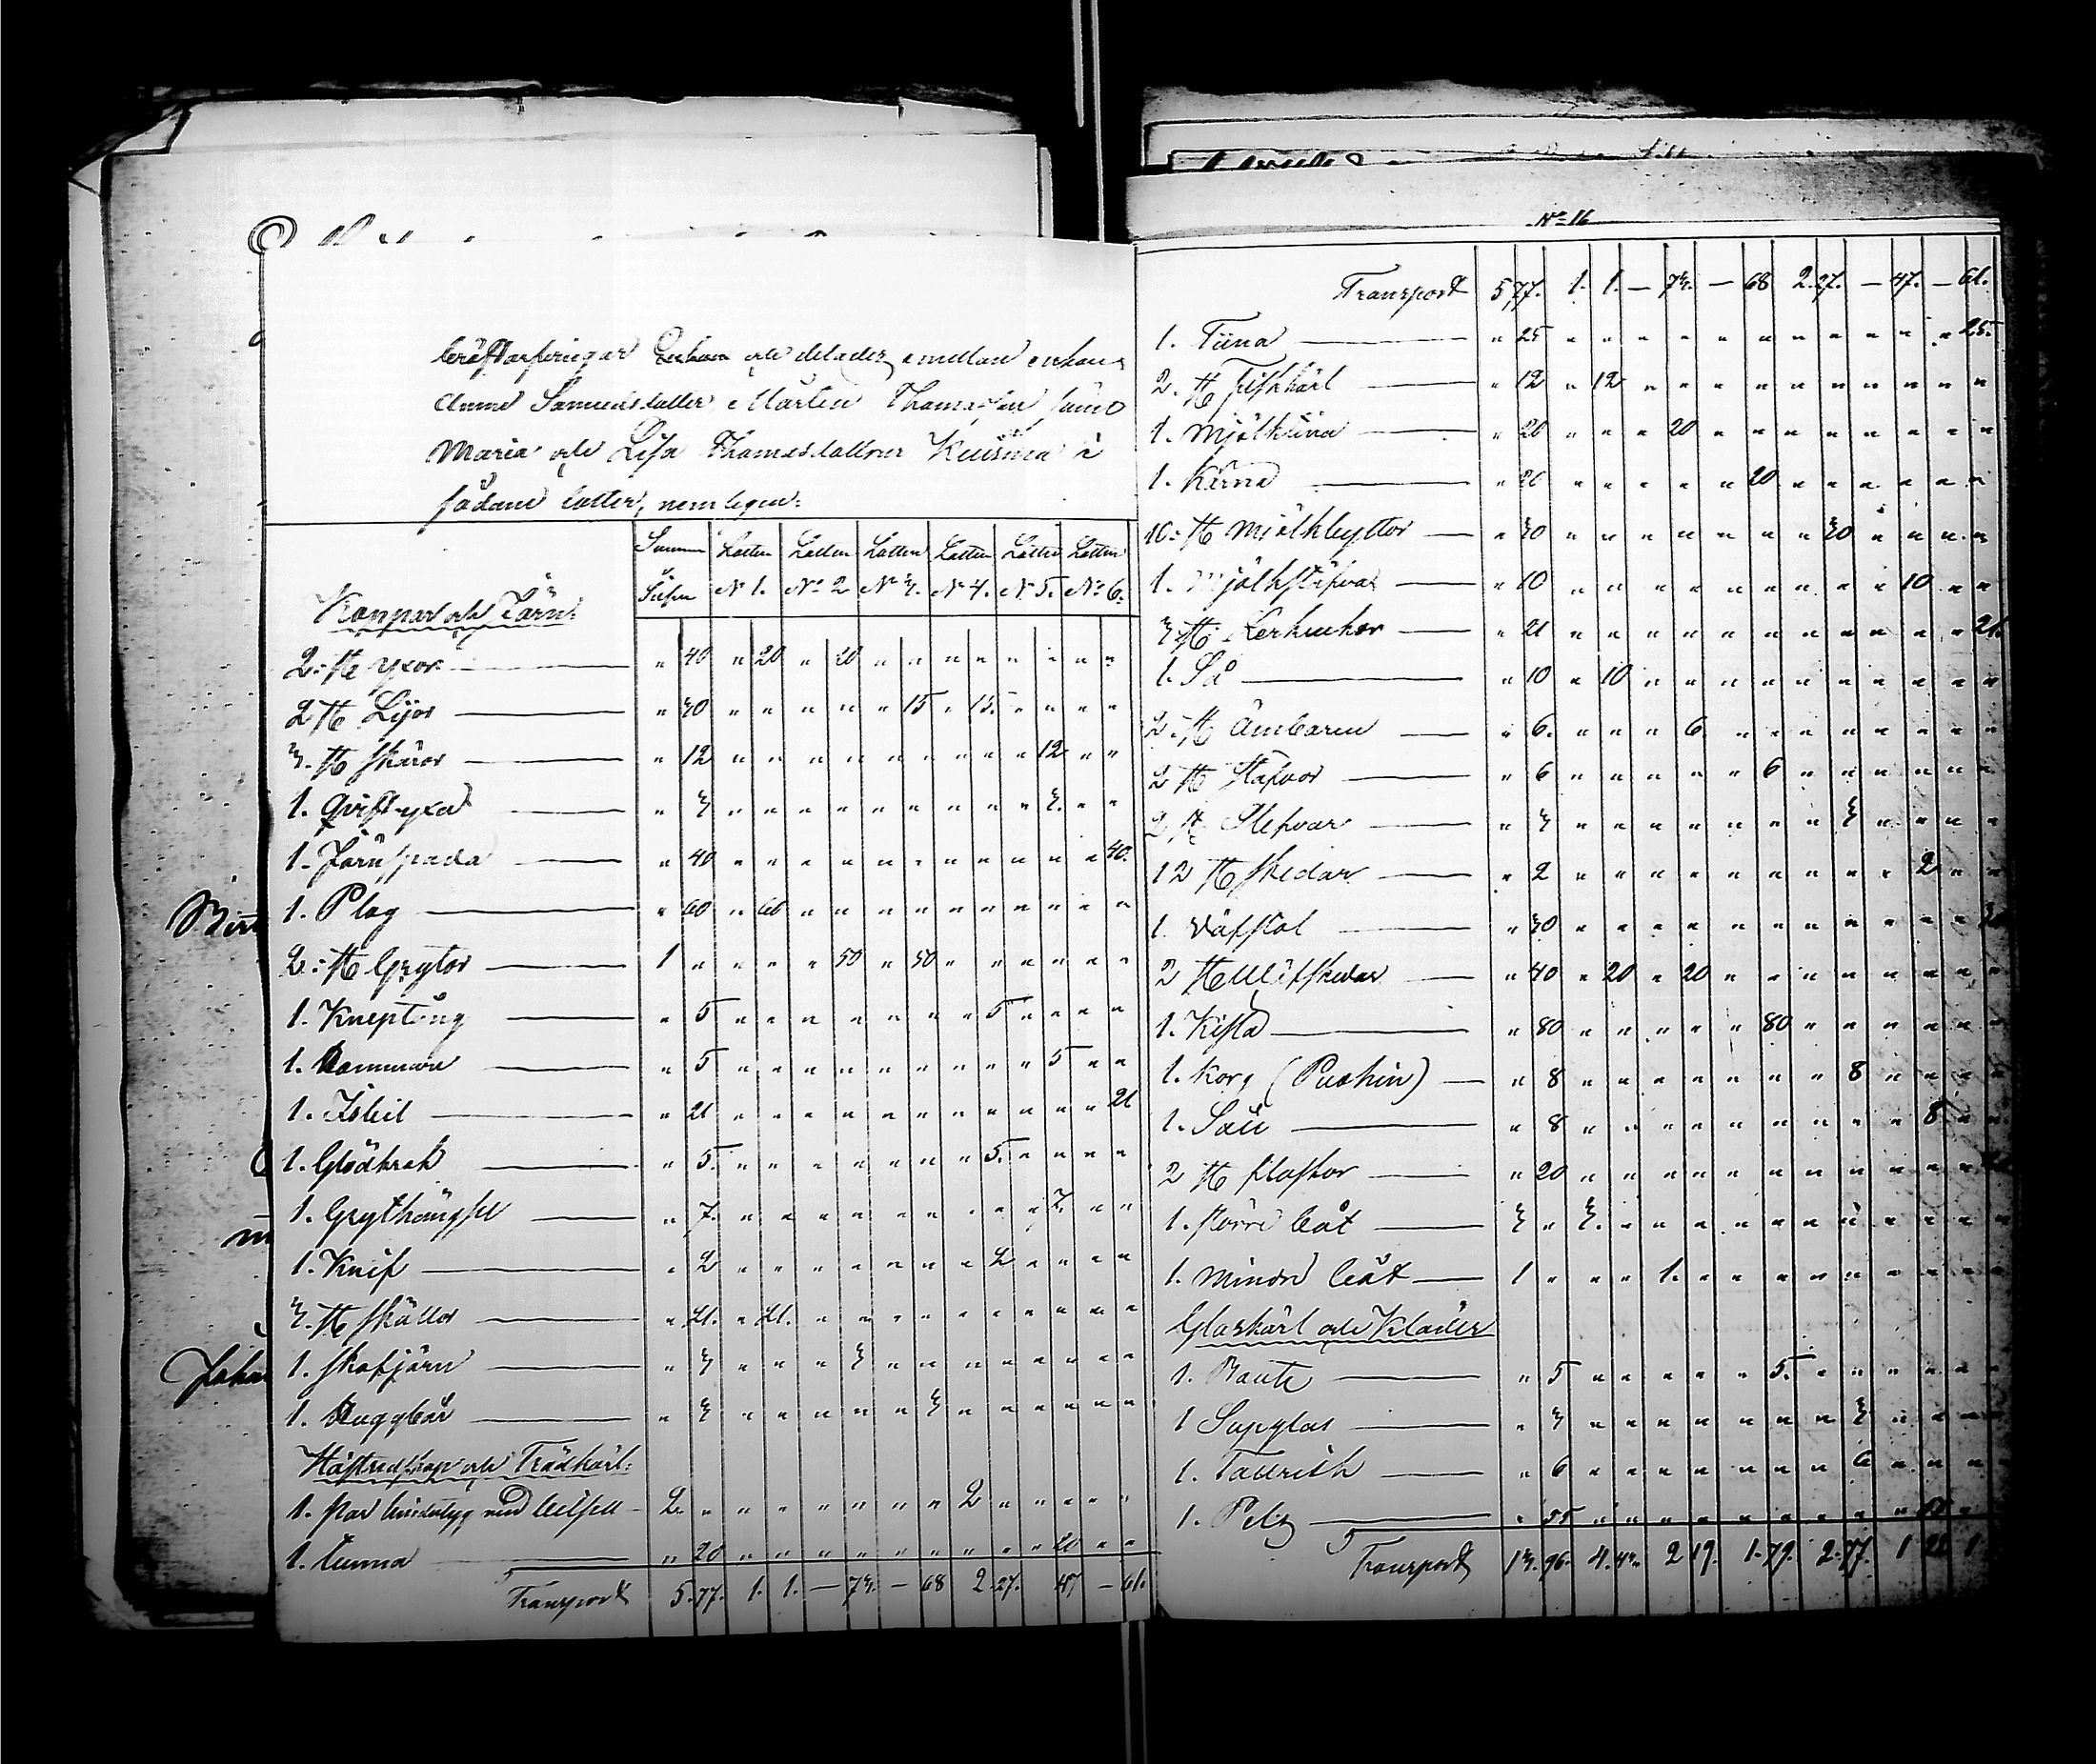 bröstarfvingar Enkan och delades emellan enkan
Anna Samuelsdotter, Mårten Thomasson samt
Maria och Lisa Thomasdottrar Kuusma i
sådane lotter, nemligen:
Summa Lotten Lotten Lotten Lotten Lotten Lotten
Silfver N 1. No 2 N 3. No 4. N 5. No 6.
Koppar och Järn:
2 st yxor " 40 " 20 " 20 " " " " " " " "
2 st Lijor " 30 " " " " " 15 " 15 " " " "
3 st skäror " 12 " " " " " " " " " 12 " "
1. Qvistyxa " 3 " " " " " " " " " 3. " "
1. Järnspada " 40 " " " " " " " " " " " 40.
1. Plog " 60 " 60 " " " " " " " " " "
2 st Grytor 1 " " " " 50 " 50 " " " " " "
1. Kneptång " 5 " " " " " " " 5 " " " "
1. Hammare " 5 " " " " " " " " " 5 " "
1. Isbil " 21 " " " " " " " " " " " 21
1. Glödkrok " 5. " " " " " " " 5. " " " "
1. Grythängsel " 7. " " " " " " " " " 7. " "
1. Knif " 2 " " " " " " " 2 " " " "
3. st skällor " 21. " 21. " " " " " " " " " "
1. skafjärn " 3 " " " 3 " " " " " " " "
1. Huggbår " 3 " " " " " 3 " " " " " "
Hästredskap och Trädkärl:
1. par 2. " " " " " " " 2 " " " " "
1. tunna " 20 " " " " " " " " " 20 " "
Transport 5.77. 1. 1. — 73. — 68 2.27. 47 — 61.
No 16
Transport 5 77. 1. 1. — 73. — 68 2.27. — 47. — 61.
1. Tiina " 25 " " " " " " " " " " " 25
2. st Fiskkärl " 12 " 12 " " " " " " " " " "
1. Mjölktina " 20 " " " 20 " " " " " " " "
1. Kärna " 20 " " " " " 20 " " " " " "
10 st Mjölkbyttor " 30 " " " " " " " 30 " " " "
1. Mjölkstäfva " 10 " " " " " " " " " 10 " "
3 st " 21 " " " " " " " " " " " 21
1. Så " 10 " 10 " " " " " " " " " "
2. st Ämbaren " 6. " " " 6 " " " " " " " "
2 st Stäfvor " 6 " " " " " 6 " " " " " "
2 st Slefvar " 3 " " " " " " " 3 " " " "
12 st skedar " 2 " " " " " " " " " 2 " "
1. Väfstol " 30 " " " " " " " " " " " 30
2 st Wäfskedar " 40 " 20 " 20 " " " " " " " "
1. Kista " 80 " " " " " 80 " " " " " "
1. Korg (Puohin) " 8 " " " " " " " 8 " " " "
1. Såll " 8 " " " " " " " " " 8 " "
2 st flaskor " 20 " " " " " " " " " " "
1. större båt 3 " 3. " " " " " " " " " " "
1. mindre båt 1 " " " 1. " " " " " " " " "
Glaskärl och Kläder
1. Boute " 5 " " " " " 5. " " " " " "
1 Supglas " 3 " " " " " " " 3 " " " "
1. Tallrick " 6 " " " " " " " 6 " " " "
1. Pels " 55 " " " " " " " " " 55 "
Transport 13.96. 4.43. 2 19. 1.79. 2.77. 1 22 1